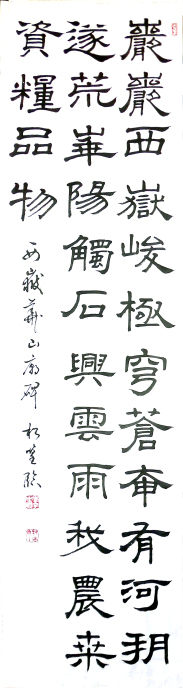 巖巖西嶽峻極穹蒼奄有河朔
遂荒崋陽觸石興雲雨我農桒
資糧品物
西嶽華山廟碑